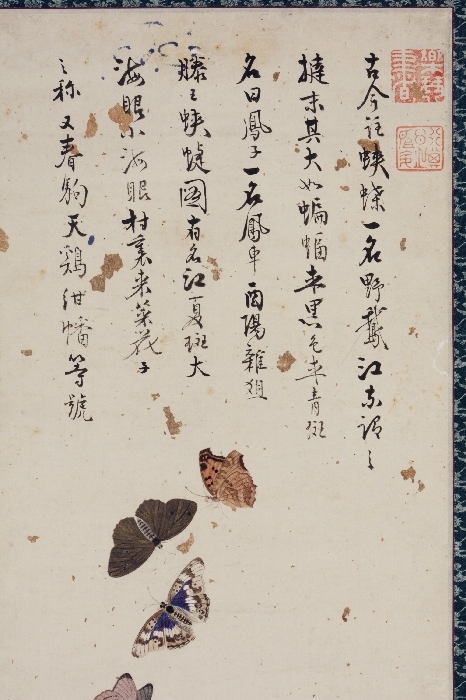 古今註蛺蝶一名野蛾江东謂之
撻末其大如蝙蝠或黒色或青斑
名曰鳳子一名鳳車酉陽雜俎
滕王蛺蝶図有名江夏斑大
海眼小海眼村裏来菜花子
之称又春駒天鶏紺幡等號